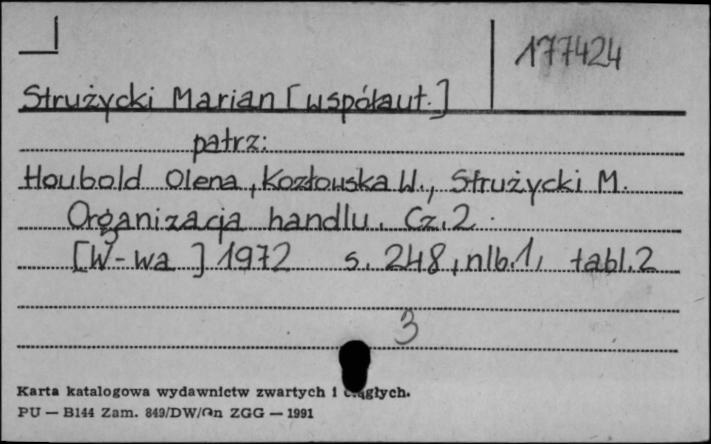 177424
Strużycki Marian [współaut.]
patrz:
Houbold Olena, Kozłowska W., Strużycki M.
Organizacja handlu. Cz. 2.
[W-wa] 1972 s. 248, nlb. 1, tabl. 2
3
Karta katalogowa wydawnictw zwartych i ciągłych.
PU — B144 Zam. 849/DW/On ZGG — 1991